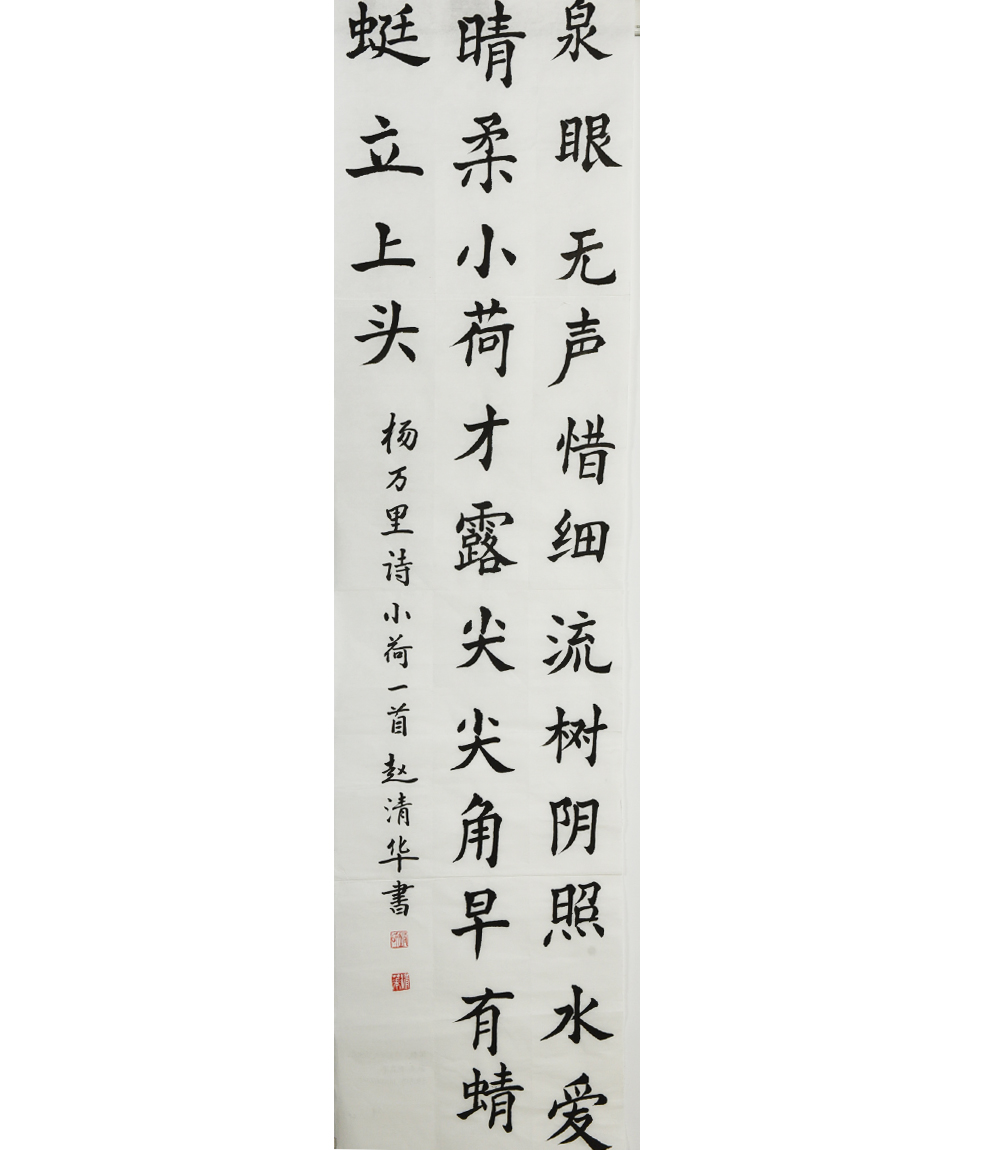 泉眼无声惜细流树阴照水爱
晴柔小荷才露尖尖角早有蜻
蜓立上头
杨万里诗小荷一首赵清华書